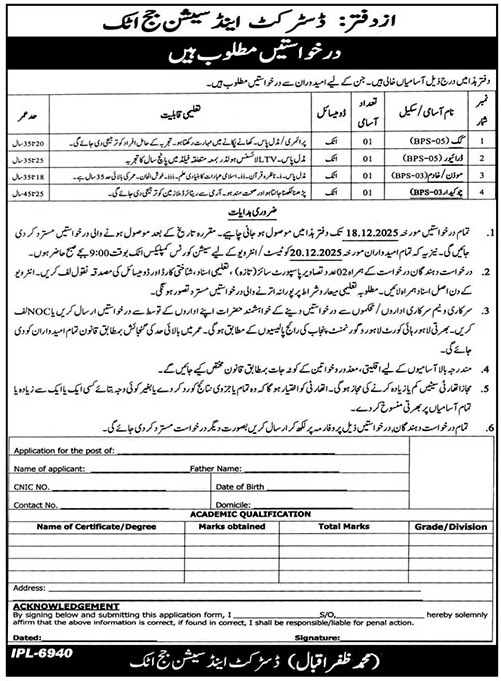 از دفتر: ڈسٹرکٹ اینڈ سیشن جج اٹک
درخواستیں مطلوب ہیں
دفتر ہذا میں درج ذیل آسامیاں خالی ہیں۔ جن کے لیے امیدوران سے درخواستیں مطلوب ہیں۔
نمبر شمار نام آسامی/سکیل تعداد آسامی ڈومیسائل تعلیمی قابلیت حد عمر
1 کک (BPS-05) 01 اٹک پرائمری/مڈل پاس۔ کھانے پکانے میں مہارت رکھتا ہو۔ تجربہ کے حامل افراد کو ترجیح دی جائے گی۔ 20تا35سال
2 ڈرائیور (BPS-05) 01 اٹک مڈل پاس۔ LTV لائسنس ہولڈر بمعہ متعلقہ فیلڈ میں پانچ سال کا تجربہ 25تا35سال
3 موذن/خادم (BPS-03) 01 اٹک مڈل پاس۔ ناظرہ قرآن۔ اسلامی عبادات کا بنیادی علم۔ خوش الحان۔ عمر کی بالائی حد 35 سال ہے۔ 18تا35سال
4 چوکیدار BPS-03) 01 اٹک پڑھنا لکھنا جانتا ہو اور صحت مند ہو۔ آرمی سے ریٹائرڈ ملازمین کو ترجیح دی جائے گی۔ 25تا45سال
ضروری ہدایات
1. تمام درخواستیں مورخہ 18.12.2025 تک دفتر ہذا میں موصول ہو جانی چاہیے۔ مقررہ تاریخ کے بعد موصول ہونے والی درخواستیں مسترد کر دی
جائیں گی۔ نیز یہ کہ تمام امیدواران مورخہ 20.12.2025 کو ٹیسٹ/انٹرویو کے لیے سیشن کورٹس کمپلیکس اٹک بوقت 9:00 بجے صبح حاضر ہوں۔
2. درخواست دہندگان درخواست کے ہمراہ 02 عدد تصاویر پاسپورٹ سائز (تازہ)، تعلیمی اسناد، شناختی کارڈ اور ڈومیسائل کی مصدقہ نقول لف کریں۔ انٹرویو
کے دن اصل اسناد ہمراہ لائیں۔ مطلوبہ تعلیمی معیار و شرائط پر پورا نہ اترنے والی درخواستیں مسترد تصور ہونگی۔
3. سرکاری و نیم سرکاری اداروں/محکموں سے درخواستیں دینے کے خواہشمند حضرات اپنے اداروں کے توسط سے درخواستیں ارسال کریں یا NOC لف
کریں۔ بھرتی لاہور ہائی کورٹ لاہور و گورنمنٹ پنجاب کی رائج پالیسیوں کے مطابق ہو گی۔ عمر میں بالائی حد کی گنجائش بمطابق قانون تمام امیدواران کو دی
جائے گی۔
4. مندرجہ بالا آسامیوں کے لیے اقلیتی، معذور و خواتین کے کوٹہ جات بمطابق قانون مختص کیے جائیں گے۔
5. مجاز اتھارٹی سیٹیں کم یا زیادہ کرنے کی مجاز ہوگی۔ اتھارٹی کو اختیار ہو گا کہ وہ تمام یا جزوی نتائج کو رد کر دے یا بغیر کوئی وجہ بتائے کسی ایک یا ایک سے زیادہ یا
تمام آسامیاں پر بھرتی منسوخ کر دے۔
6. تمام درخواست دہندگان درخواستیں ذیل پروفارمہ پر لکھ کر ارسال کریں بصورت دیگر درخواست مسترد کر دی جائے گی۔
Application for the post of:
Name of applicant: Father Name:
CNIC NO. Date of Birth
Contact No. Domicile:
ACADEMIC QUALIFICATION
Name of Certificate/Degree Marks obtained Total Marks Grade/Division
Address:
ACKNOWLEDGEMENT
By signing below and submitting this application form, I S/O, hereby solemnly
affirm that the above information is correct, if found in correct, I shall be responsible/liable for penal action.
Dated: Signature:
IPL-6940 (محمد ظفر اقبال) ڈسٹرکٹ اینڈ سیشن جج اٹک